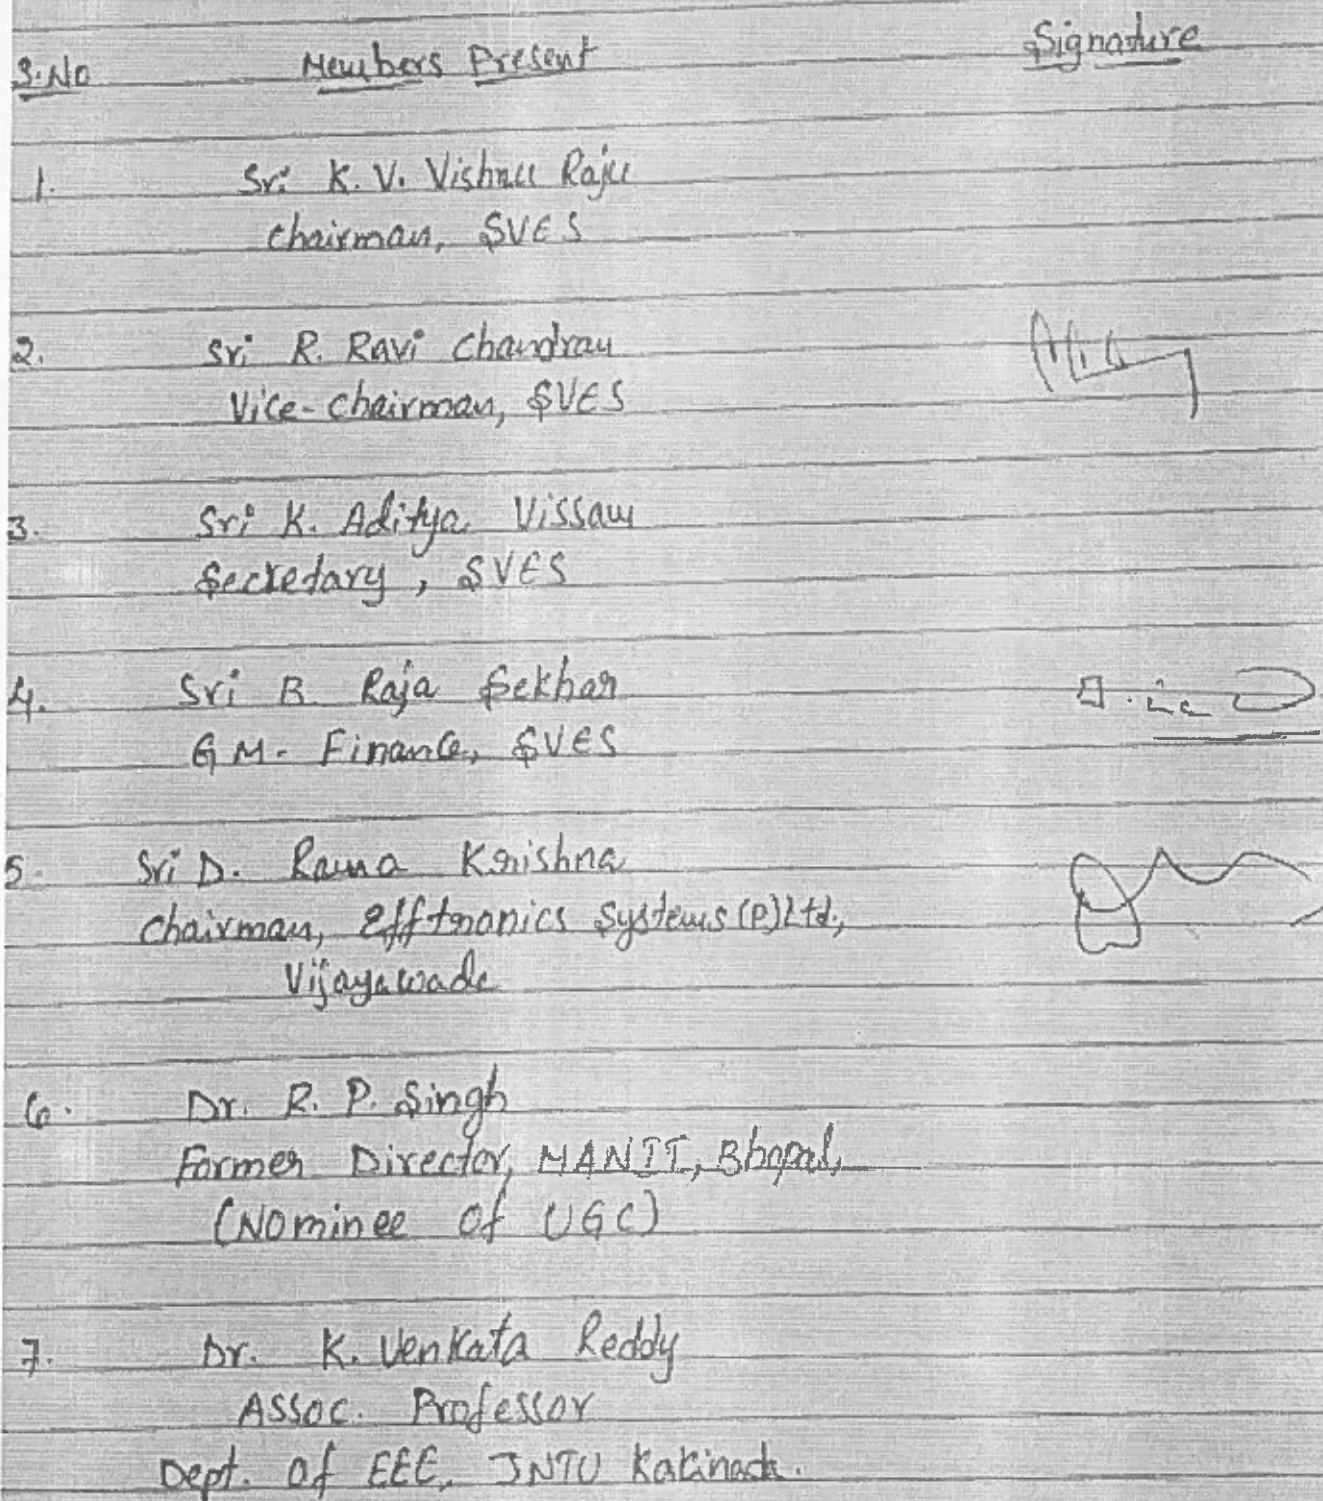 S.No Members Present Signature
1. Sri K. V. Vishnu Raju
Chairman, SVES
2. Sri R. Ravi Chandran
Vice-Chairman, SVES
3. Sri K. Aditya Vissam
Secretary, SVES
4. Sri B Raja Sekhar
G M. Finance, SVES
5. Sri D. Rama Krishna
Chairman, Efftronics Systems (P) Ltd.,
Vijayawada
6. Dr. R. P. Singh
Former Director, MANIT, Bhopal,
(Nominee of UGC)
7. Dr. K. Venkata Reddy
Assoc. Professor
Dept. of EEE, JNTU Kakinada.